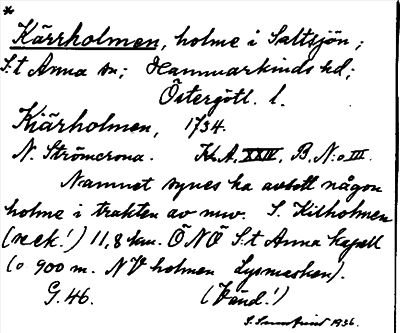 *
Kärrholmen, holme i Saltsjön;
S:t Anna sn; Hammarkinds hd;
Östergötl. l.
Kiärholmen, 1734.
N. Strömcrona. K.A. XXIV, B. N:o III.
Namnet synes ha avsett någon
holme i trakten av nuv. S. Kilholmen
(reek.!) 11,8 km. ÖNÖ S:t Anna kapell
(o 900 m. NV holmen Lysmasken).
G. 46. (Känd!)
1936.